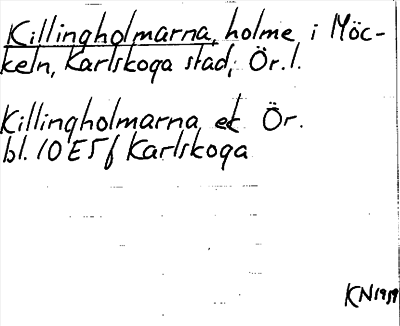 Killingholmarna, holme i Möc-
keln, Karlskoga stad, Ör. l.
Killingholmarna ek Ör.
bl. 10E5f Karlskoga
KN 1959